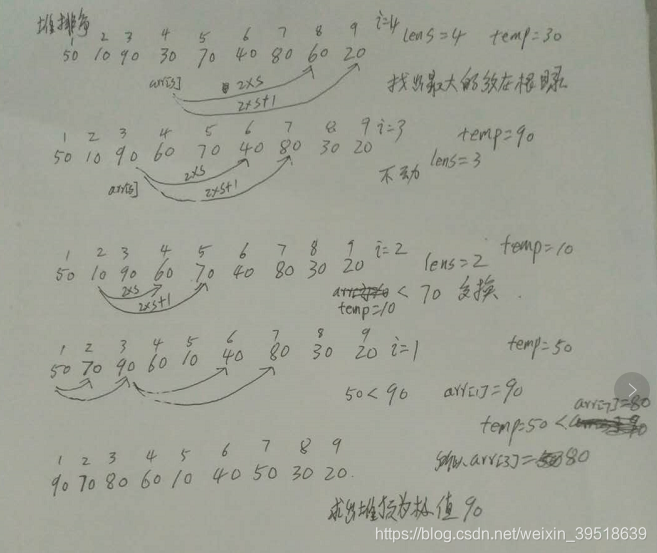 堆排序
1 2 3 4 5 6 7 8 9 i=4 lens=4 temp=30
50 10 90 30 70 40 80 60 20
arr[s] 2×s
2×s+1
找出最大的放在根目录
1 2 3 4 5 6 7 8 9 i=3 temp=90
50 10 90 60 70 40 80 30 20 lens=3
arr[s] 2×s 不动
2×s+1
1 2 3 4 5 6 7 8 9 i=2 lens=2 temp=10
50 10 90 60 70 40 80 30 20
2×s
2×s+1
< 70 交换.
temp=10
1 2 3 4 5 6 7 8 9 i=1 temp=50
50 70 90 60 10 40 80 30 20
50<90 arr[1]=90
arr[7]=80
temp=50 <
所以arr[3]=80
1 2 3 4 5 6 7 8 9
90 70 80 60 10 40 50 30 20.
求出堆顶为 值90
https://blog.csdn.net/weixin_39518639